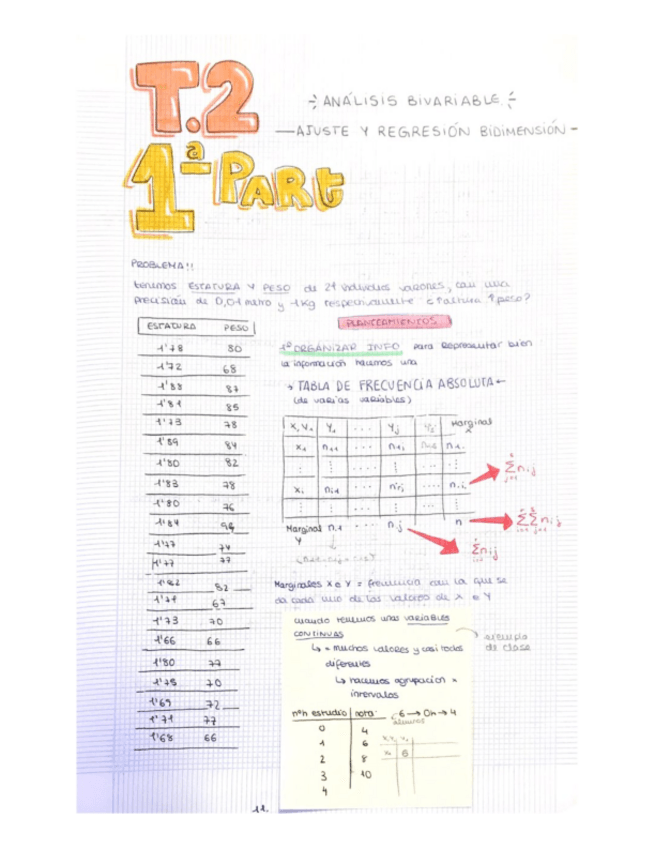 T.2
1ª PART
ANÁLISIS BIVARIABLE
AJUSTE Y REGRESIÓN BIDIMENSIÓN
PROBLEMA!!
tenemos ESTATURA Y PESO de 21 individuos varones, con una
precisión de 0,01 metro y 1kg respectivamente
ESTATURA PESO
1'78 80
1'72 68
1'88 87
1'81 85
1'73 78
1'89 84
1'80 82
1'83 78
1'80 76
1'84 96
74
77
82
67
1'73 70
1'66 66
1'80 77
1'75 70
1'69 72
1'71 77
1'68 66
PLANTEAMIENTOS
1º ORGANIZAR INFO para representar bien
la información hacemos una
→ TABLA DE FRECUENCIA ABSOLUTA ←
(de varias variables)
Y₁ ... Yⱼ Marginal X
X₁ n₁₁ ... n₁ⱼ n₁.
Xᵢ nᵢ₁ ... nᵢⱼ ... nᵢ.
Marginal Y n.₁ ... n.ⱼ n
Σnᵢⱼ
ΣΣnᵢⱼ
Σnᵢⱼ
Marginales X e Y = frecuencia con la que se
da cada uno de los valores de X e Y
cuando tenemos unas VARIABLES
CONTINUAS
↳ = muchos valores y casi todos
diferentes
↳ hacemos agrupación =
intervalos
ejemplo
de clase
nºh estudio nota
6 → 0h → 4
alumnos
0 4
1 6
2 8
3 10
4
6
11